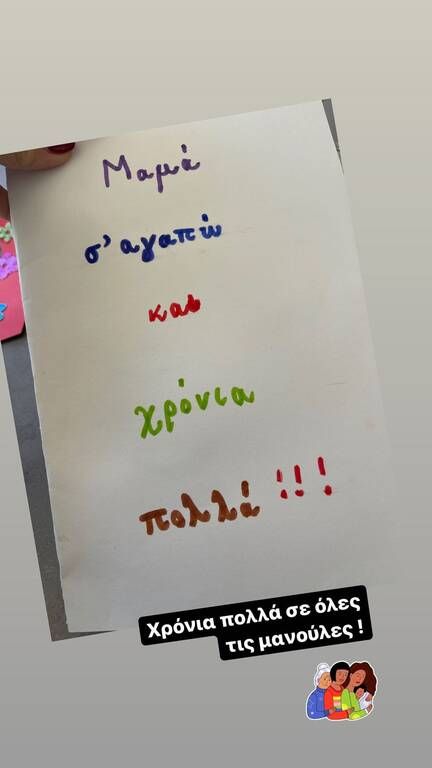 Μαμά
σ' αγαπώ
και
χρόνια
πολλά !!!
Χρόνια πολλά σε όλες
τις μανούλες !